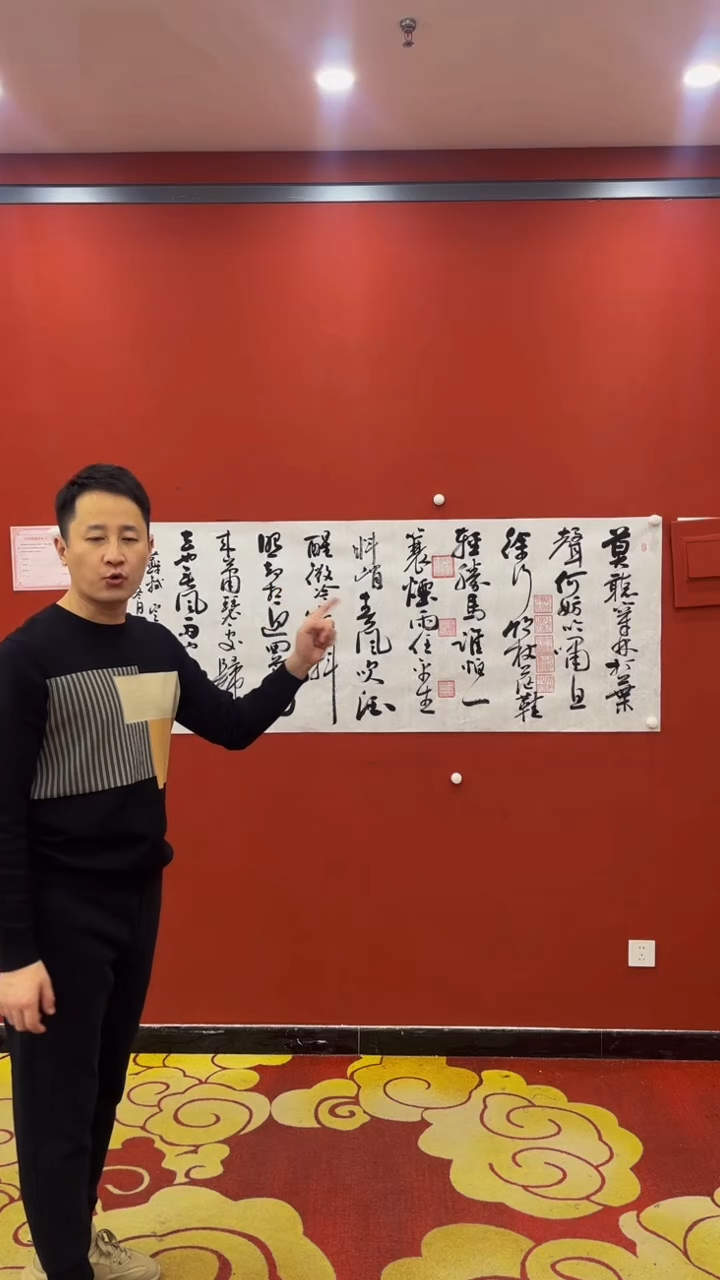 莫聽穿林打葉
聲何妨吟嘯且
徐行竹杖芒鞋
輕勝馬誰怕一
蓑煙雨任平生
料峭春風吹酒
醒微冷斜
照却相迎回
来蕭瑟處歸
去也無風雨
蘇軾定